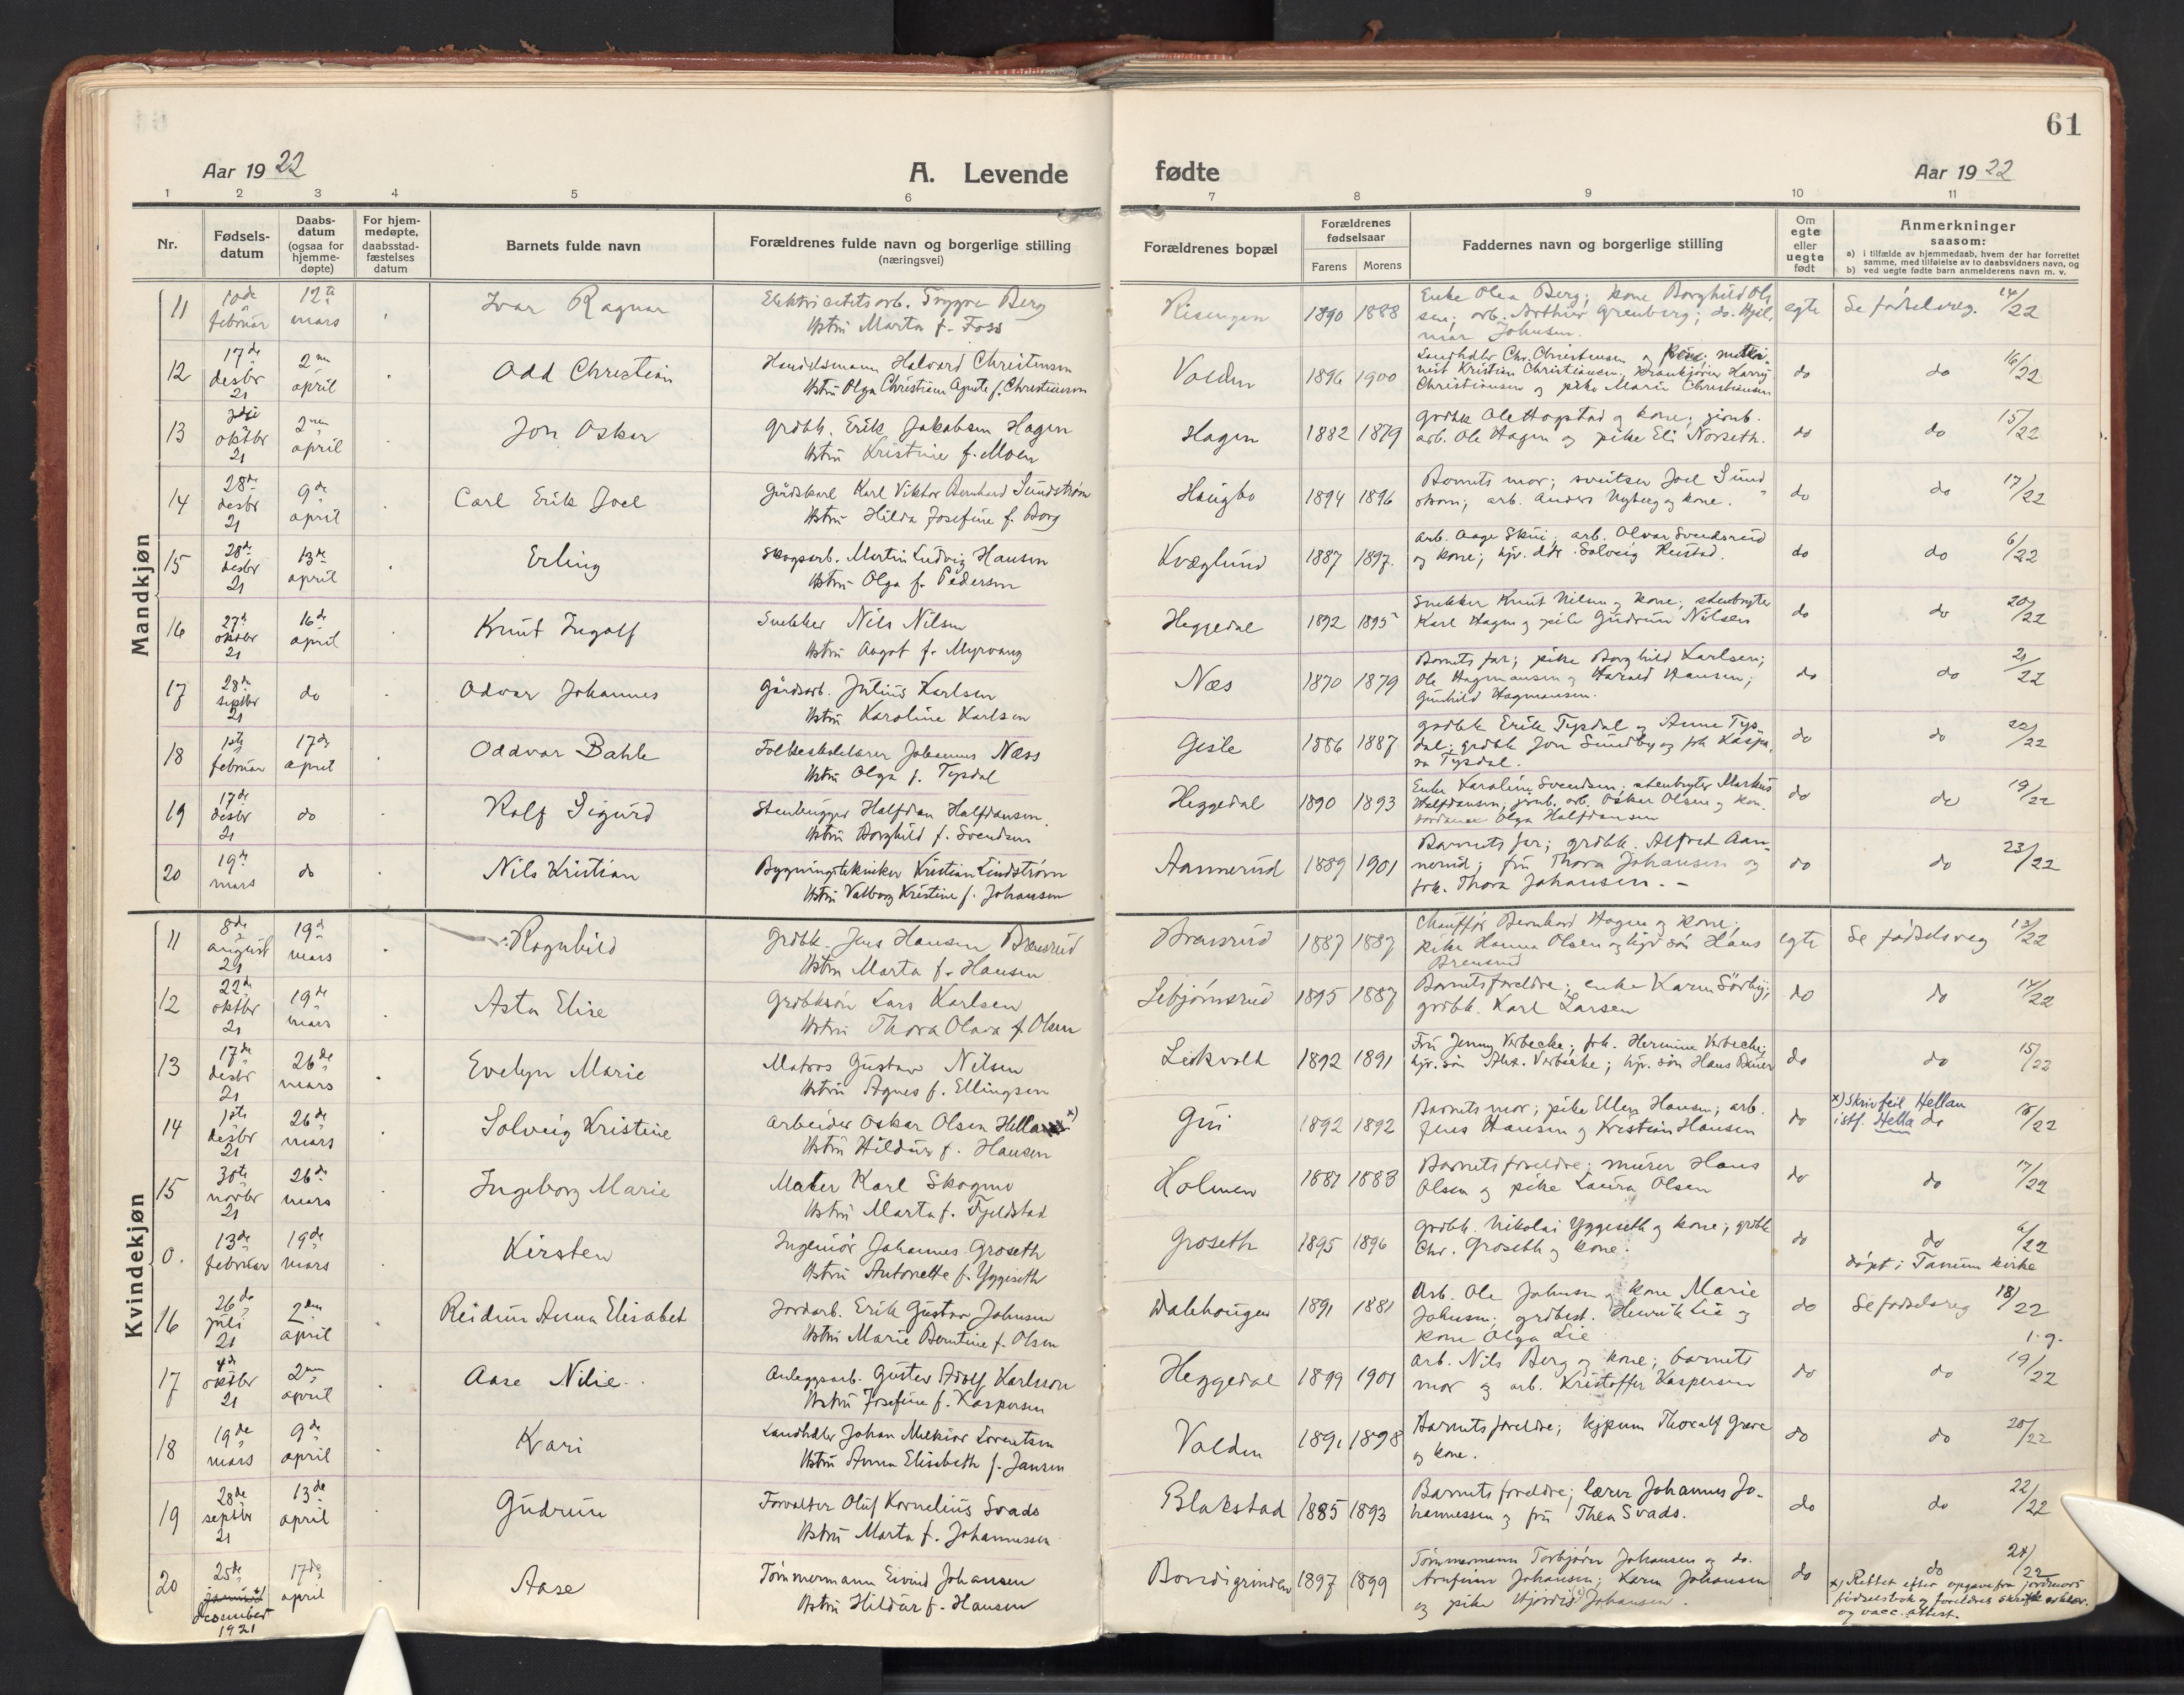 61
Aar 1922
A. Levende
fødte
Aar 1922
1 2 3 4 5 6 7 8 9 10 11
Nr.
Fødsels-
datum
Daabs-
datum
(ogsaa for
hjemme-
døpte)
For hjem-
medøpte,
daabsstad-
fæstelses
datum
Barnets fulde navn
Forældrenes fulde navn og borgerlige stilling
(næringsvei)
Forældrenes bopæl
Forældrenes
fødselsaar
Farens Morens
Faddernes navn og borgerlige stilling
Om
egte
eller
uegte
født
Anmerkninger
saasom:
a) i tilfælde av hjemmedaab, hvem der har forrettet
samme, med tilføielse av to daabsvidners navn, og
b) ved uegte fødte barn anmelderens navn m. v.
Mandkjøn
11
10de februar
12te mars
Ivar Ragnar
Elektricitetsarb. Trygve Berg
Hstru Marta f. Foss
Risengen
1890 1888
Enke Olea Berg; kone Borghild Ol-
sen; arb. Arthur Grenberg; do. Hjal-
mar Johnsen.
egte
Se fødselsreg. 14/22
12
17de desbr 21
2nen april
Odd Christian
Handelsmann Halvard Christensen
Hstru Olga Christiane Agute f. Christiansen
Valden
1896 1900
Landhdlr Chr. Christensen og kone; maski-
nist Kristian Christiansen; Harry
Christiansen og pike Marie Christiansen
do
do 16/22
13
oktbr 21
2nen april
Jon Oskar
grdbk. Erik Jakobsen Hagen
Hstru Kristine f. Moen
Hagen
1882 1879
grdbk Ole Hogstad og kone; jernb.
arb. Ole Hagen og pike Eli Norseth.
do
do 15/22
14
28de desbr 21
9de april
Carl Erik Joel
Gårdskarl Karl Viktor Bernhard Sundström
Hstru Hilda Josefine f. Borg
Haugbo
1894 1896
Barnets mor; sveitser Joel Sund-
ström; arb. Anders Nyberg og kone.
do
do 17/22
15
28de desbr 21
13de april
Erling
Skogsarb. Martin Ludvig Hansen
Hstru Olga f. Pedersen
Kvæglund
1887 1897.
arb. Aage Skui; arb. Olvar Svendsrud
og kone; hjv. dtr. Solveig Rustad.
do
do 6/22
16
27de oktbr 21
16de april
Knut Ingolf
Snekker Nils Nilsen
Hstru Aagot f. Myrvang
Heggedal
1892 1895
Snekker Knut Nilsen og kone; stenbryter
Karl Hagen og pike Gudrun Nilsen
do
do 20/22
17
28de septbr 21
do
Odvar Johannes
Gårdsarb. Julius Karlsen
Hstru Karoline Karlsen
Næs
1870 1879
Barnets far; pike Borghild Karlsen;
Ole Hagmansen og Harald Hansen;
Gunhild Hagmansen.
do
do 21/22
18
1ste februar
17de april
Oddvar Bahle
Folkeskolelærer Johannes Næss
Hstru Olga f. Tysdal
Gisle
1886 1887
grdbk Erik Tysdal og Anne Tys-
dal; grdbk Jon Sundby og frk Kaspa-
ra Tysdal.
do
do 22/22
19
17de desbr 21
do
Rolf Sigurd
Stenhugger Halfdan Halfdansen.
Hstru Borghild f. Svendsen
Heggedal
1890 1893
Enke Karoline Svendsen; stenbryter Markus
Halfdansen; jernb. arb. Oskar Olsen og kon-
tordame Olga Halfdansen
do
do 19/22
20
19de mars
do
Nils Kristian
Bygningstekniker Kristian Lindstrøm
Hstru Valborg Kristine f. Johansen
Aamerud
1889 1901
Barnets far; grdbk. Alfred Aam-
merud; fru Thora Johansen og
frk. Thora Johansen. -
do
do 23/22
Kvindekjøn
11
8de august 21
19de mars
Ragnhild
Grdbk. Jens Hansen Brensrud
Hstru Marta f. Hansen
Brensrud
1887 1887
Chauffør Bernhard Hagen og kone;
pike Hanna Olsen og hjv søn Hans
Brensrud
egte
Se fødselsreg 13/22
12
22de oktbr 21
19de mars
Asta Elise
Grdbksøn Lars Karlsen
Hstru Thora Olava f. Olsen
Lebjørnsrud
1895 1887
Barnets foreldre; enke Karen Sørby;
grdbk. Karl Larsen
do
do 14/22
13
17de desbr 21
26de mars
Evelyn Marie
Matros Gustav Nilsen
Hstru Agnes f. Ellingsen
Leikvold
1892 1891
Fru Jenny Verbecke; frk. Hermine Verbecke;
hjv. søn Alex. Verbecke; hjv. søn Hans
do
do 15/22
14
1ste desbr 21
26de mars
Solveig Kristine
Arbeider Oskar Olsen Hellan x)
Hstru Hildur f. Hansen
Gui
1892 1892
Barnets mor; pike Ellen Hansen; arb.
Jens Hansen og Kristian Hansen
do
x) Skrivfeil Hellan
istf. Hella do 16/22
15
30te novbr 21
26de mars
Ingeborg Marie
Maler Karl Skogmo
Hstru Marta f. Fjeldstad
Holmen
1887 1883
Barnets foreldre; murer Hans
Olsen og pike Laura Olsen
do
do 17/22
0.
13de februar
19de mars
Kirsten
Ingeniør Johannes Groseth
Hstru Antonette f. Yggeseth
Groseth
1895 1896
Grdbk. Nikolai Yggeseth og kone; grdbk
Chr. Groseth og kone.
do
do 6/22
døpt i Tanum kirke
16
26de juli 21
2nen april
Reidun Anna Elisabet
Jordarb. Erik Gustav Johnsen
Hstru Marie Berntine f. Olsen
Dalehaugen
1891 1881
Arb. Ole Johnsen og kone Marie
Johnsen; grdbest. Henrik Lie og
kone Olga Lie
do
Se fødselsreg 18/22
1.g.
17
4de oktbr 21
2nen april
Aase Nilie
Anleggsarb. Gustav Adolf Karlsson
Hstru Josefine f. Kaspersen
Heggedal
1899 1901
arb. Nils Berg og kone; barnets
mor og arb. Kristoffer Kaspersen
do
do 19/22
18
19de mars
9de april
Kari
Landhdler Johan Melkior Lorentsen
Hstru Anna Elisabeth f. Jansen
Valden
1891 1898
Barnets foreldre; kjpmn Thoralf Grere
og kone.
do
do 20/22
19
28de septbr 21
13de april
Gudrun
Forvalter Oluf Kornelius Svads
Hstru Marta f. Johannessen
Blakstad
1885 1893
Barnets foreldre; lærer Johannes Jo-
hannessen og fru Thea Svads.
do
do 22/22
20
25de januar december 1921
17de april
Aase
Tømmermann Eivind Johansen
Hstru Hildur f. Hansen
Bondigrinden
1897 1899
Tømmermann Torbjørn Johansen og do.
Arnfinn Johansen; Karen Johansen
og pike Hjørdis Johansen.
do
do 21/22
x) Rettet efter opgave fra jordmors
fødselsbok og foreldres skriftl. erklær.
og vacc. attest.